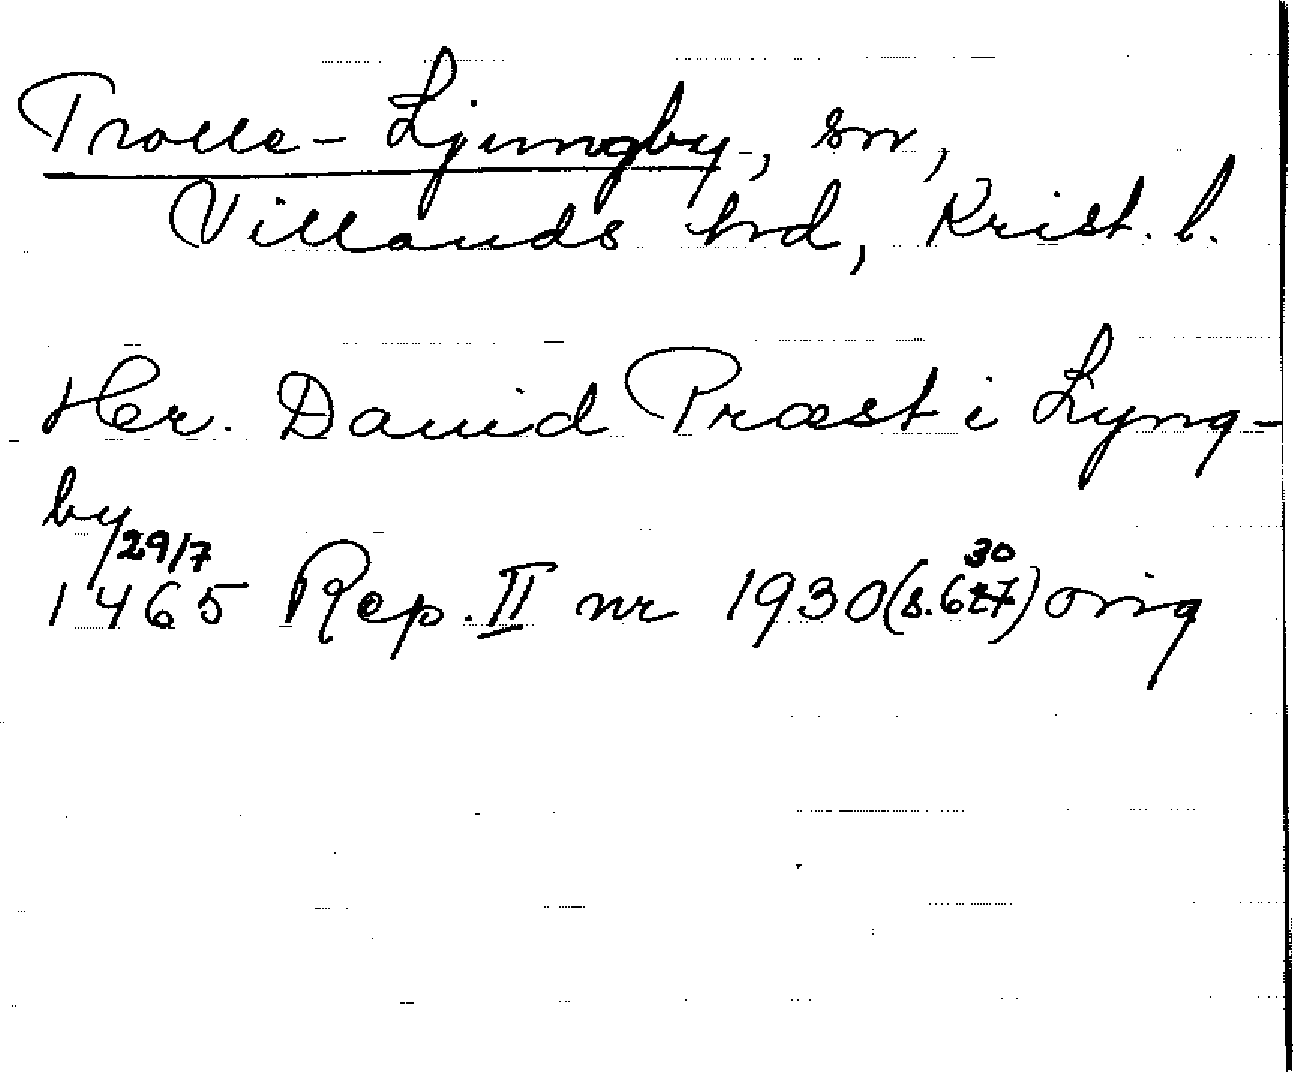 Trolle-Ljungby, sn,
Villands hrd, Krist. l.
Her. Dauid Præst i Lyng-
by
29/7 30
1465 Rep. II nr 1930 (s. 627) orig